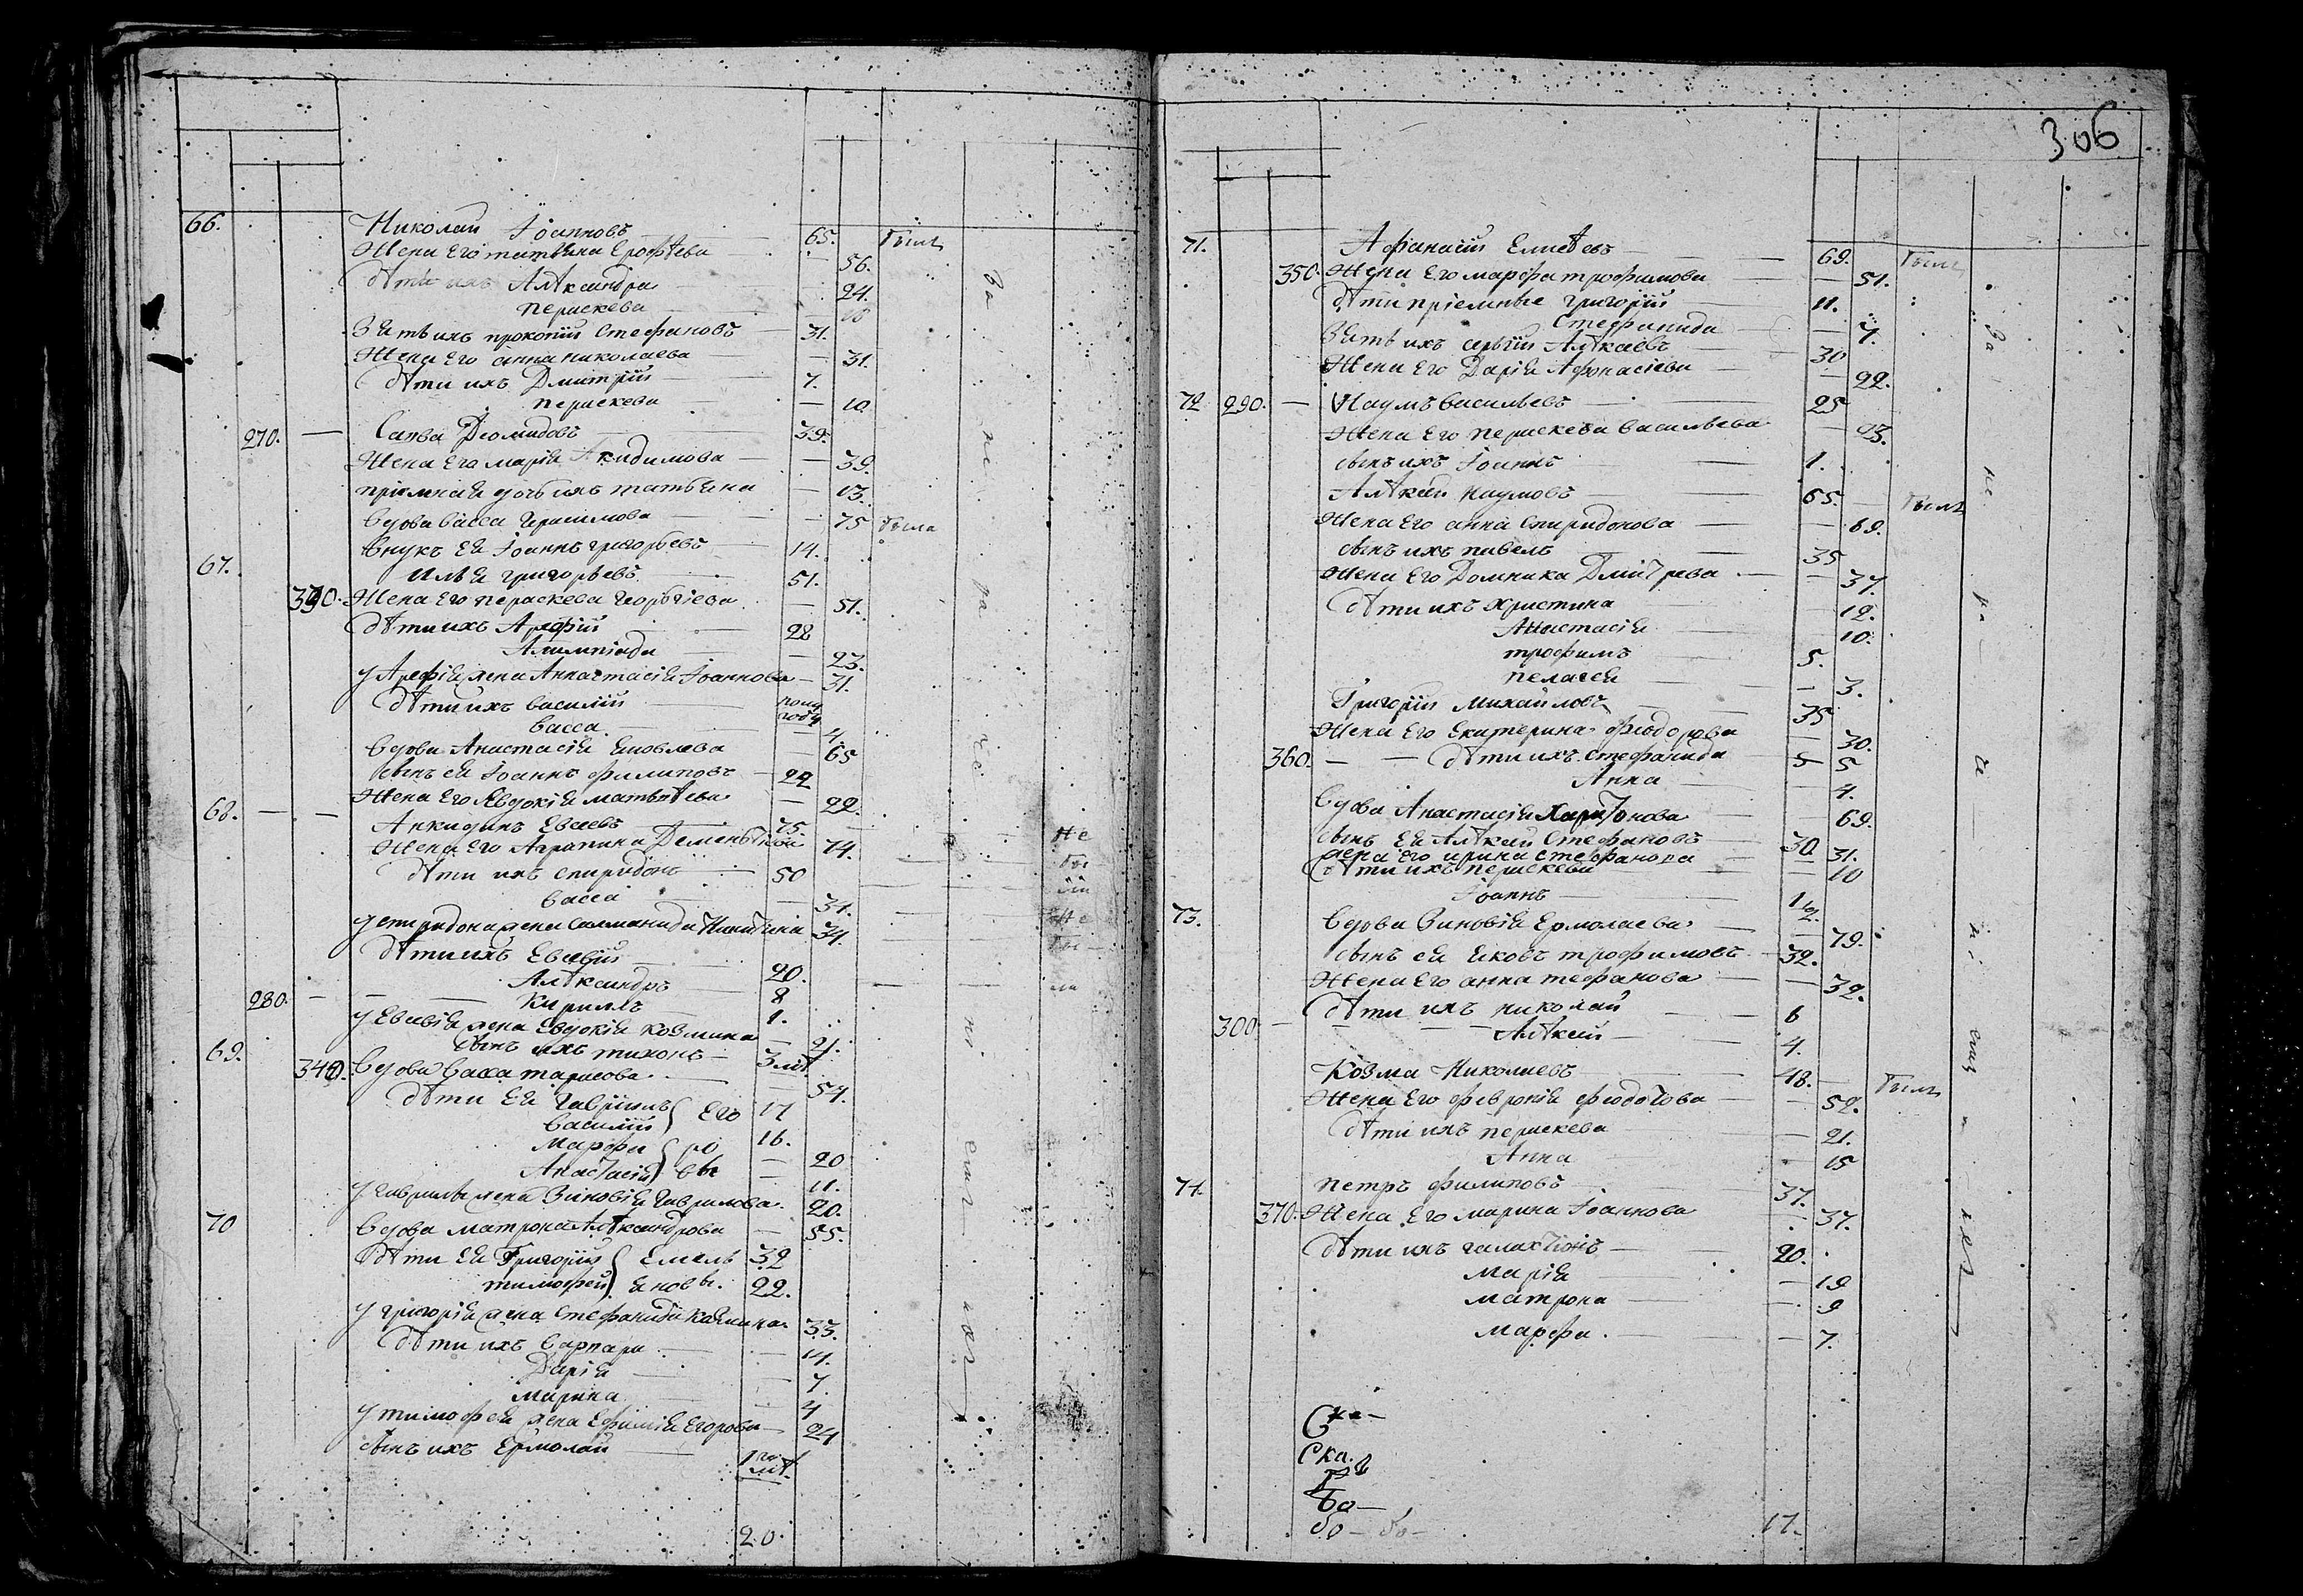 66. Николай Iоанновъ 65. былъ
Жена Его татiяна Ерофѣева 56.
дѣти ихъ Алѣксандра 24.
пераскева 18
Зять ихъ прокопiй Стефановъ 31.
Жена Его анна николаева 31.
дѣти ихъ Дмитрiй 7.
пераскева 10
270. Савва Дiомидовъ 39.
Жена Его марiя Акидимова 39.
прiемная дочь ихъ татьяна 13.
вдова васса Герасимова 75 была
внукъ Ея Iоаннъ григорьевъ 14.
67. Илья григорьевъ 51.
330. Жена Его пераскева Георгiева 51.
дѣти ихъ Арефiй 28
Алимпiада 23.
у Арефiя жена Аннастасiя Iоаннова 31.
дѣти ихъ василiй полу году
васса 4.
вдова Анастасiя Яковлева 65
сынъ ея Iоаннъ филиповъ 22
Жена Его Явдокiя матьвѣева 22.
68. Анкидинъ Евсевъ 75.
Жена Его Аграпина Деменьтiева 74.
дѣти ихъ спиридонъ 50
васса 31.
у спиридона жена Саламанида Никитина 34.
дѣти ихъ Евсевiй 20.
Алѣксандръ 8
280. Кирилъ 1.
у Евсевiя жена Евдокiя козмина 21.
сынъ ихъ тихонъ 3 лѣт
69. 340. вдова васса тарасова 54.
дѣти Ея Гаврiилъ Его 17
василiй 16.
марфа ро 20
Анастасiя вы 11.
у гаврилы жена Зиновiя Гаврилова 20.
70 вдова матрона Алѣксандрова 55.
дѣти Ея Григорiй Емель 32
тимофей яновы. 22.
у григорiя жена Стефанида козмина 33.
дѣти ихъ варвара 14.
Дарiя 7.
марина 4
у тимофея жена Ефимiя Егорова 24
сынъ ихъ Ермолай 1 го лѣт.
20.
За не ра че нi емъ ихъ
Не бы ли
Не бы ли
306
71. Афанасiй Елисѣевъ 69. былъ
350. Жена Его марфа трофимова 51.
дѣти прiемные григорiй 11.
Стефанида 7.
Зять ихъ сергiй Алѣкъевъ 30
Жена Его Дарiя Афонасiева 22.
72 290. Наумъ васильевъ 25
Жена Его пераскева васильева 23.
сынъ ихъ Iоаннъ 1.
Алѣкѣй наумовъ 65. былъ
Жена Его анна спиридонова 69.
сынъ ихъ павелъ 35
Жена Его Домника Дмiтрева 37.
дѣти ихъ христина 12.
Анастасiя 10.
трофимъ 5.
пелагея 3.
Григорiй михайловъ 35
Жена Его Екатерина феодорова 30.
360. дѣти ихъ стефанида 5
Анна 4.
вдова Анастасiя Харитонова 69.
сынъ Ея Алѣкѣй Стефановъ 30
жена Его ирина стефанова 31.
дѣти ихъ пераскева 10
Iоаннъ 1 1/2.
73. вдова Зиновiя Ермолаева 79.
сынъ ея яковъ трофимовъ 32.
Жена Его анна тефанова 32.
дѣти ихъ николай 6
300 Алѣкѣй 4.
Козма Николаевъ 48. былъ
Жена Его февронiя феодотова 52.
дѣти ихъ пераскева 21.
Анна 15
74. петръ филиповъ 37.
370. Жена Его марина Iоаннова 37.
дѣти ихъ галактiонъ 20.
марiя 19
матрона 9
марфа 7.
Ска.
Бо
17.
За не ра че нi емъ ихъ